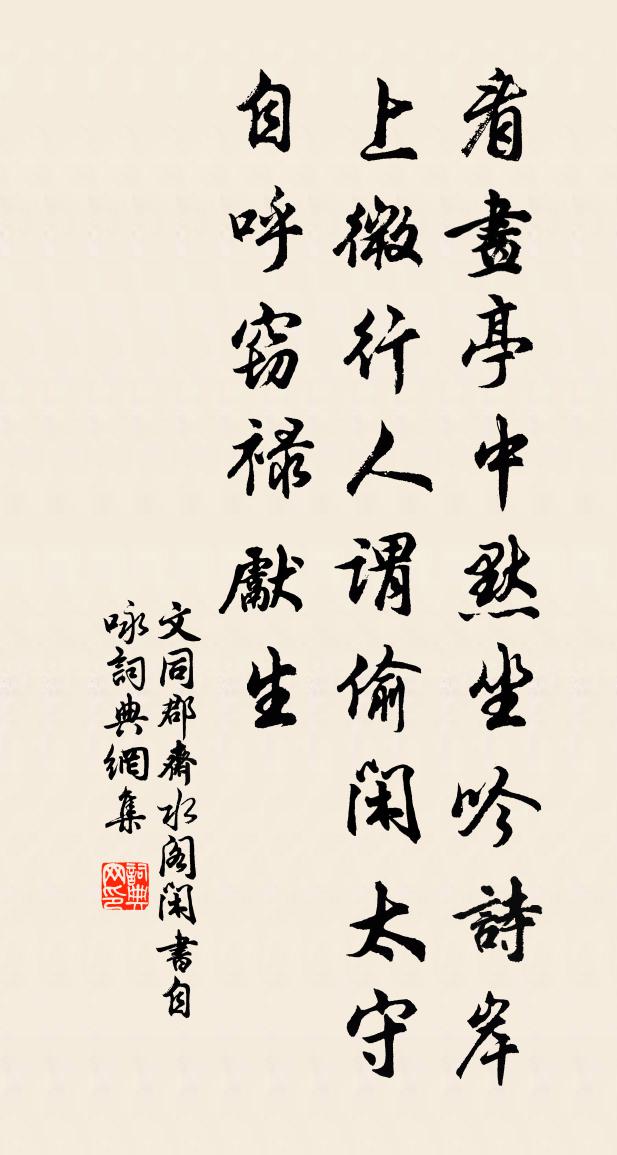 看畫亭中默坐吟詩岸
上微行人謂偷閑太守
自呼窃禄獻生
文同郡齋水閣閑書自
咏詞典網集
詞典网印